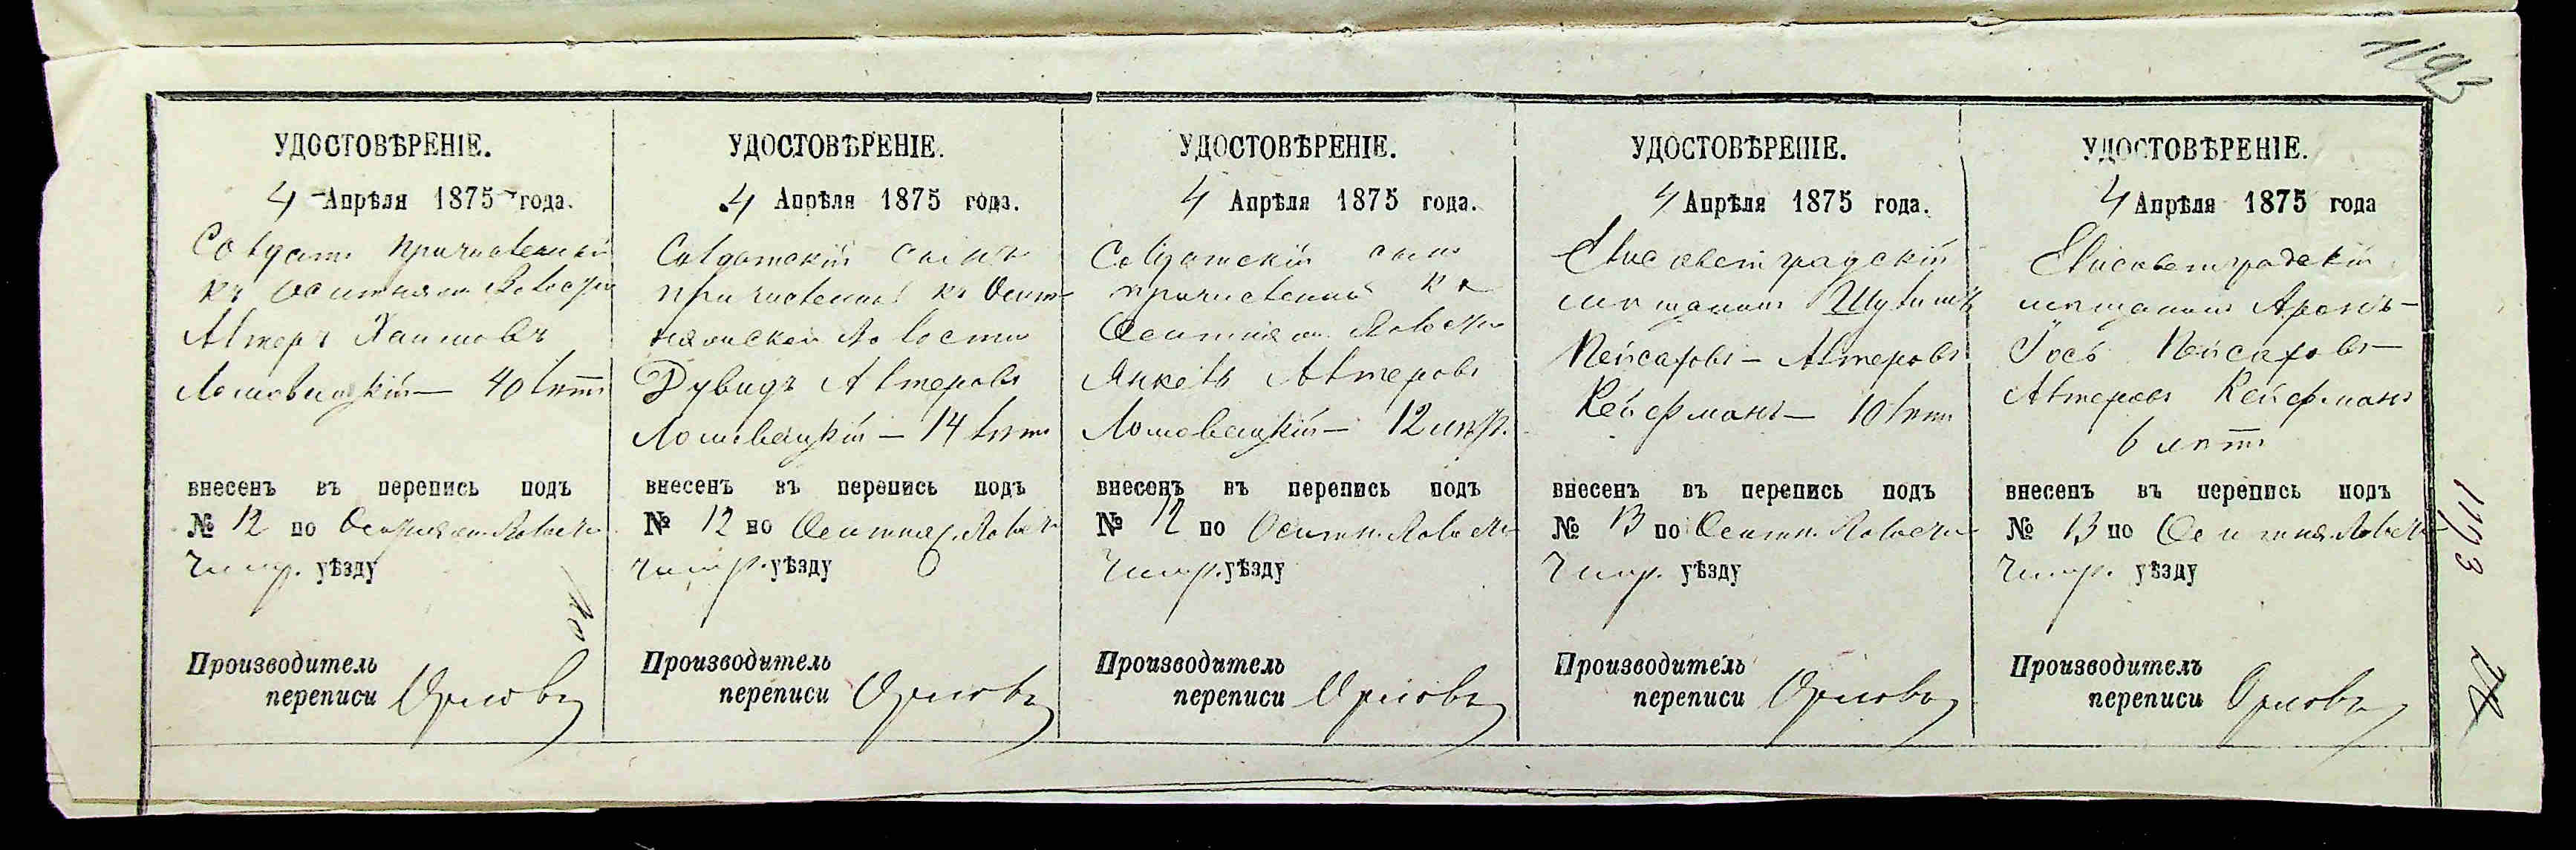 1193
УДОСТОВѢРЕНІЕ.
4 Апрѣля 1875 года.
Солдатъ причисленный
къ Оситняж. Волости
Алтеръ Хаимовъ
Ломовецкій — 40 лѣтъ
внесенъ въ перепись подъ
№ 12 по Оситняж. Волости
Чигир. уѣзду
Производитель
переписи Орловъ
УДОСТОВѢРЕНІЕ.
4 Апрѣля 1875 года.
Солдатскій сынъ
причисленный къ Осит-
няжской Волости
Дувидъ Алтеровъ
Ломовецкій — 14 лѣтъ
внесенъ въ перепись подъ
№ 12 по Оситняж. Волост
Чигир. уѣзду
Производитель
переписи Орловъ
УДОСТОВѢРЕНІЕ.
4 Апрѣля 1875 года.
Солдатскій сынъ
причисленный къ
Оситняж. Волости
Янкель Алтеровъ
Ломовецкій — 12 лѣтъ
внесенъ въ перепись подъ
№ 12 по Оситн. Волости
Чигир. уѣзду
Производитель
переписи Орловъ
УДОСТОВѢРЕНІЕ.
4 Апрѣля 1875 года.
Елисаветградскій
мѣщанинъ Шулимъ
Пейсахов — Алтеровъ
Кейфманъ — 10 лѣтъ
внесенъ въ перепись подъ
№ 13 по Оситн. Волости
Чигир. уѣзду
Производитель
переписи Орловъ
УДОСТОВѢРЕНІЕ.
4 Апрѣля 1875 года
Елисаветградскій
мѣщанинъ Аронъ —
Іось Пейсаховъ —
Алтеровъ Кейфманъ
6 лѣтъ
внесенъ въ перепись подъ
№ 13 по Оситняж. Волости
Чигир. уѣзду
Производитель
переписи Орловъ
1193